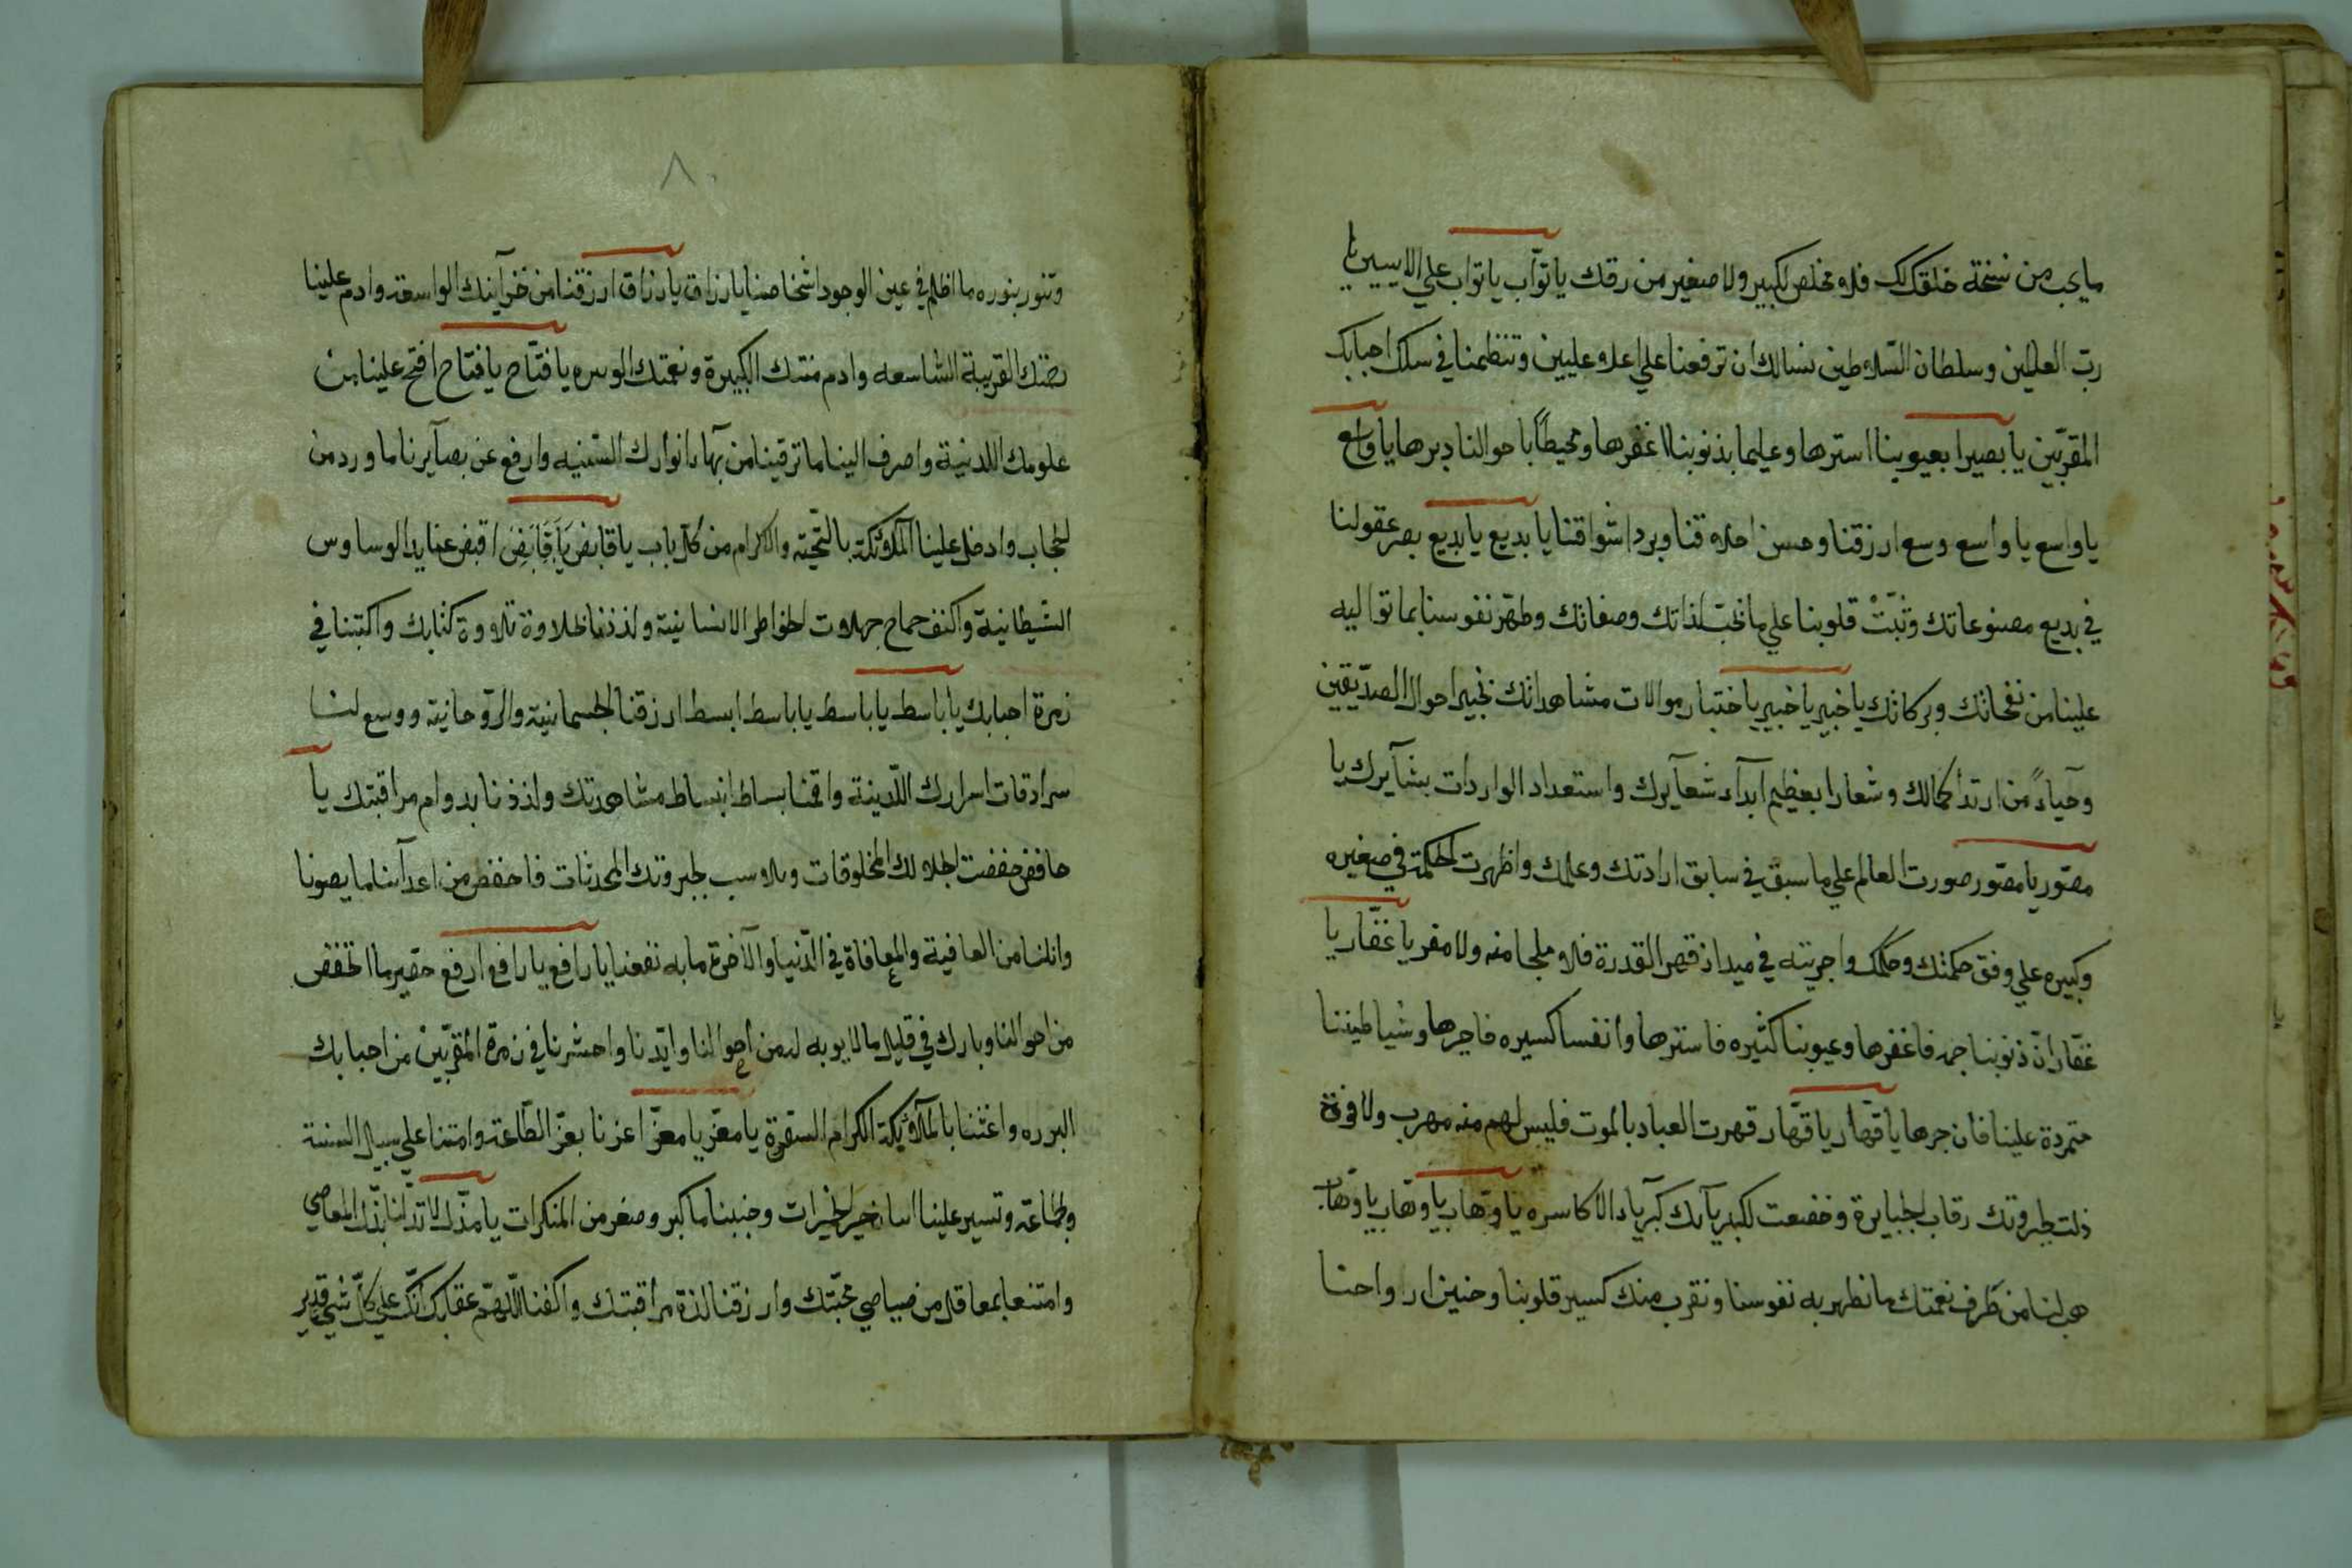 مايجب من نسخة خلقك لك فلا مخلص لكبير ولا صغير من رقك يا توّاب يا تواب علي الايسين يا
ربّ العالمين وسلطان السّلاطين نسالك ان ترفعنا علي اعلا عليين وتنظمنا في سلك احبابك
المقرّبين يا بصيرا بعيوبنا استرها وعليما بذنوبنا اغفرها ومحيطاً باحوالنا دبرها يا واسع
يا واسع يا واسع وسع ارزقنا وحسن اخلاقنا وبرد اشواقنا يا بديع يا بديع بصر عقولنا
في بديع مصنوعاتك وثبّتْ قلوبنا علي ما تحب لذاتك وصفاتك وطهّر نفوسنا بما تواليه
علينا من نفحاتك وبركاتك يا خبير يا خبير يا ختبار موالات مشاهداتك نخبر احوال الصدّيقين
وحيآءً من ارتدآ كمالك وشعارا بعظيم آبدآء شعآيرك واستعداد الواردات بشآيرك يا
مصوّر يا مصوّر صورت العالم علي ما سبق في سابق ارادتك وعلمك واظهرت الحكمة في صغيره
وكبيره علي وفق حكمتك وحكمك واجريته في ميدان قهر القدرة فلا ملجا منه ولا مفر يا غفّار يا
غفّار انّ ذنوبنا جمه فاغفرها وعيوبنا كثيره فاسترها وانفسا كسيره فاجبرها وشياطيننا
متمردة علينا فازجرها يا قهّار يا قهّار قهرت العباد بالموت فليس لهم منه مهرب ولا قوة
ذلت لجبروتك رقاب الجبابرة وخضعت لكبريآيك كبريآء الاكاسره يا وهّاب يا وهّاب يا وهّاب
هب لنا من طرف نعمتك ما نطهر به نفوسنا ونقرب منك كسير قلوبنا وحنين ارواحنا
٨
وتنور بنوره ما اظلم في عين الوجود اشخاصنا يا رزاق يا رزاق ارزقنا من خزآينك الواسعة وادم علينا
القريبة الشاسعه وادم منتك الكبيرة ونعمتك يا فتّاح يا فتاح افتح علينا من
علومك اللدنية واصرف الينا ما ترقينا من بهآء انوارك السّنيه وارفع عن بصآيرنا ما ورد من
الحجاب وادخل علينا الملآئكة بالتّحية والاكرام من كل باب يا قابض يا قابض اقبض عنا يد الوساوس
الشيطانية واكنف جماح جهلات الخواطر الانسانية ولذذنا بحلاوة تلاوة كتابك واكتبنا في
زمرة احبابك يا باسط يا باسط يا باسط ابسط ارزقنا الجسمانية والرّوحانية ووسع لنا
سرادقات اسرارك اللّدنية واقمنا بساط انبساط مشاهدتك ولذذنا بدوام مراقبتك يا
حافض خفضت لجلالك المخلوقات وجبروتك المحدثات فاخفض من اعدآينا ما يصوننا
وانلنا من العافية والمعافاة في الدّنيا والآخرة ما به نفعنا يا رافع يا رافع ارفع حقير ما انخفض
من احوالنا وبارك في قليل ما لا يوبه له من احوالنا وايّدنا واحشرنا في زمرة المقرّبين من احبابك
البرره واغثنا بالملآئكة الكرام السّفرة يا معزّ يا معزّ اعزنا بعزّ الطّاعة وامتنا علي سبيل السنة
والجماعة وتسير علينا اسباب خير الخيرات وجنبنا ما كبر وصغر من المنكرات يا مذّل لا تذّلنا بذّل المعاصي
وامتنعا بمعاقل من صياصي محبّتك وارزقنا لذة مراقبتك واكفنا اللّهمّ عقابك انّك علي كلّ شي قدير